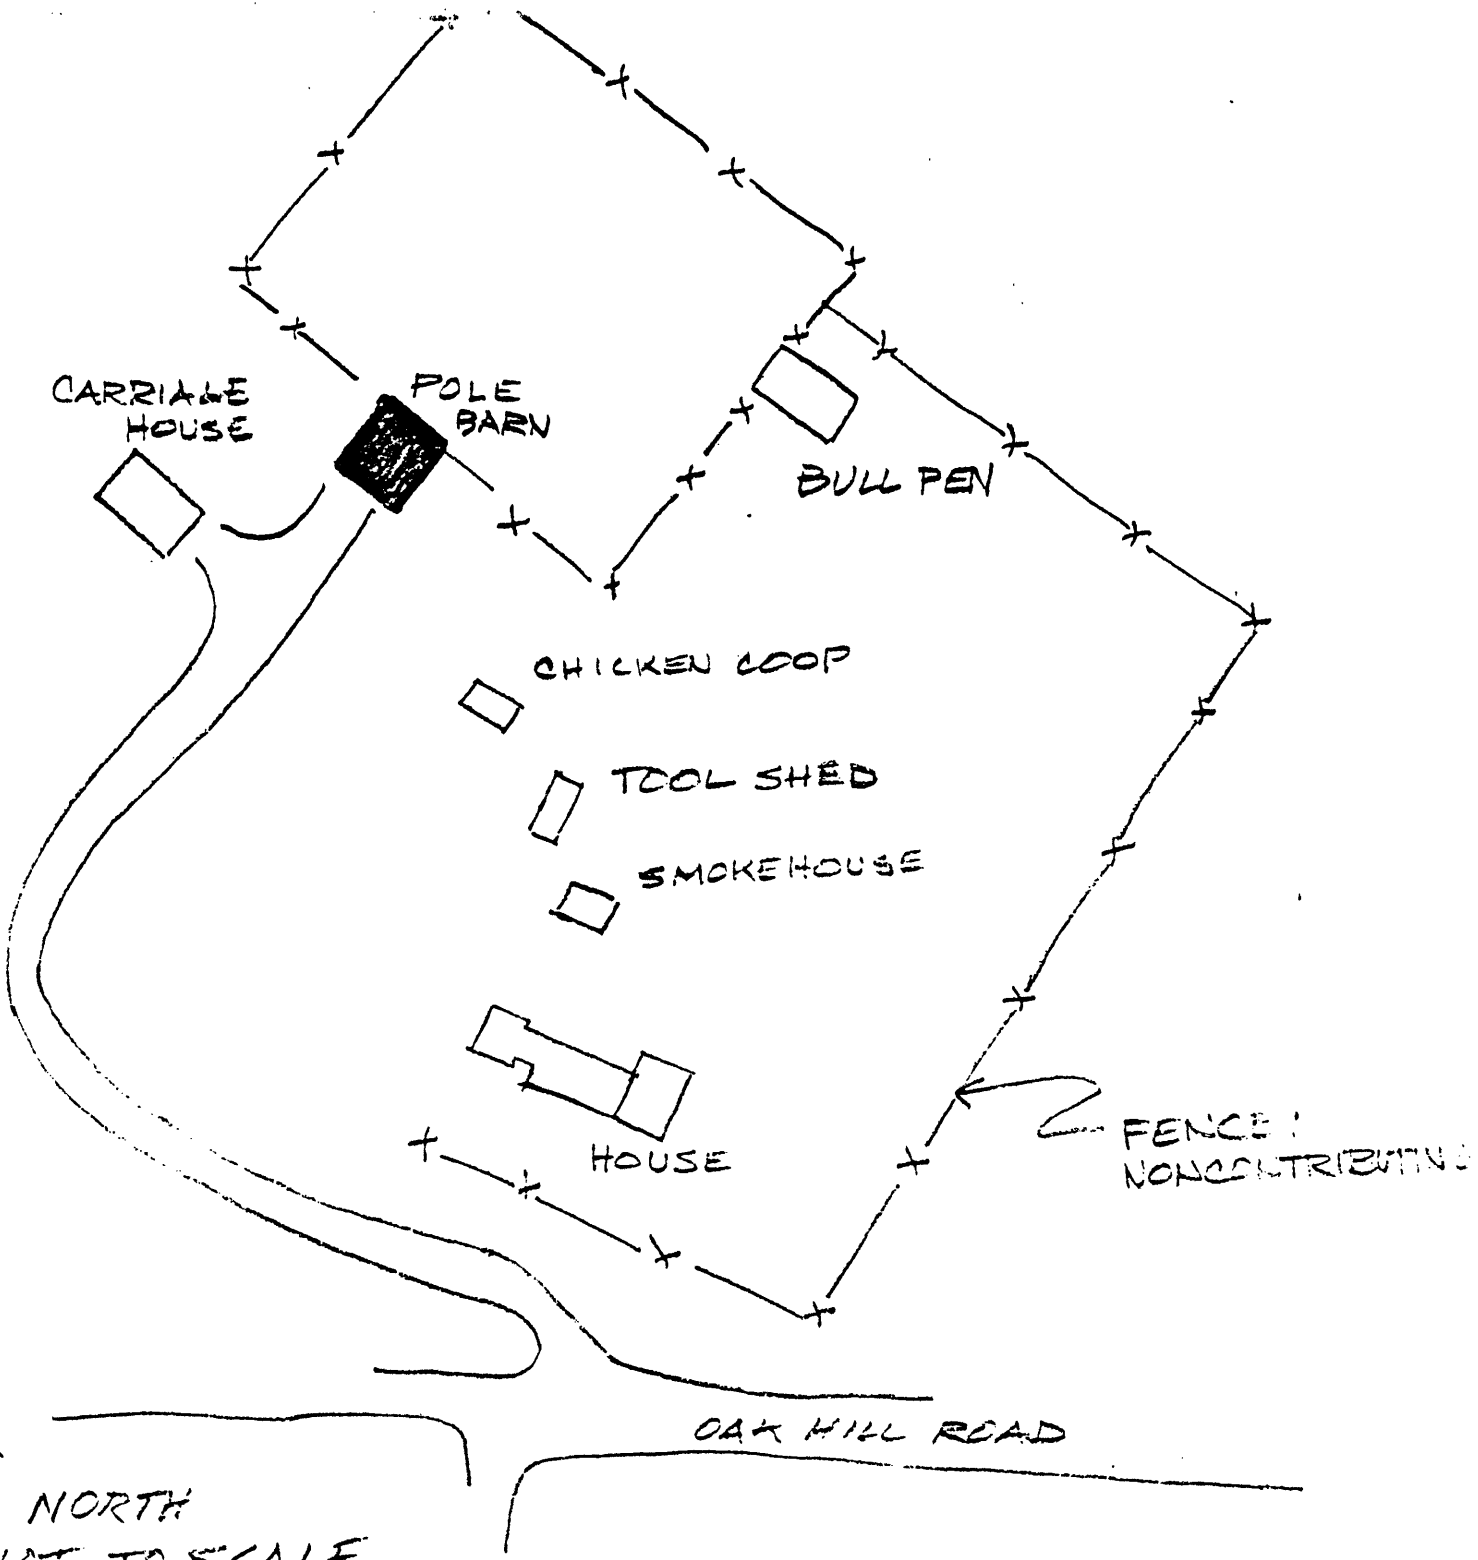 CARRIAGE
HOUSE
POLE
BARN
BULL PEN
CHICKEN COOP
TOOL SHED
SMOKEHOUSE
HOUSE
FENCE:
NONCONTRIBUTING
OAK HILL ROAD
NORTH
NOT TO SCALE